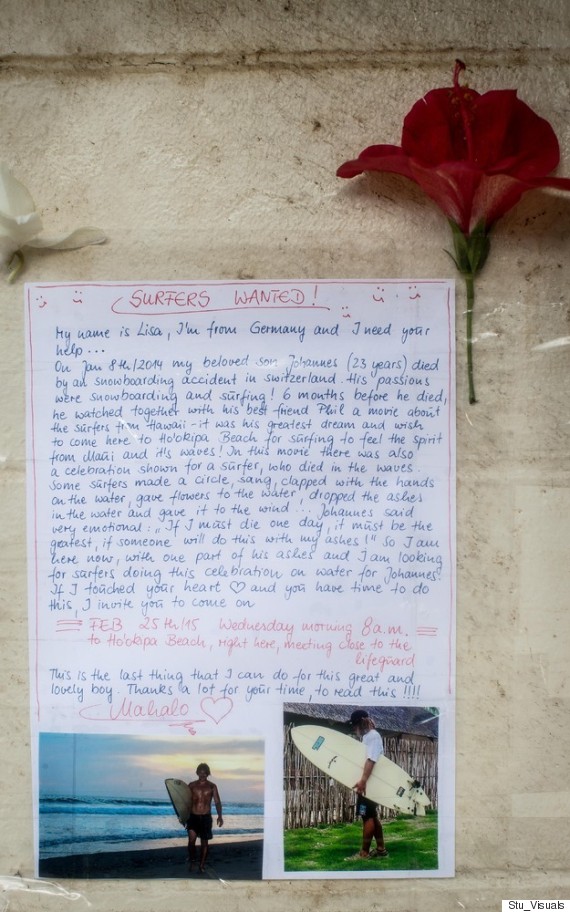 SURFERS WANTED!
My name is Lisa, I'm from Germany and I need your
help...
On Jan 8th/2014 my beloved son Johannes (23 years) died
by an snowboarding accident in switzerland. His passions
were snowboarding and surfing! 6 months before he died,
he watched together with his best friend Phil a movie about
the surfers from Hawaii - it was his greatest dream and wish
to come here to Ho'okipa Beach for surfing to feel the spirit
from Maui and it's waves! In this movie there was also
a celebration shown for a surfer, who died in the waves.
Some surfers made a circle, sang, clapped with the hands
on the water, gave flowers to the water, dropped the ashes
in the water and gave it to the wind... Johannes said
very emotional: „If I must die one day, it must be the
greatest, if someone will do this with my ashes!" So I am
here now, with one part of his ashes and I am looking
for surfers doing this celebration on water for Johannes!
If I touched your heart ♡ and you have time to do
this, I invite you to come on
FEB 25th/15 Wednesday morning 8 a.m.
to Ho'okipa Beach, right here, meeting close to the
lifeguard
This is the last thing that I can do for this great and
lovely boy. Thanks a lot for your time, to read this !!!!
Mahalo ♡
Stu_Visuals